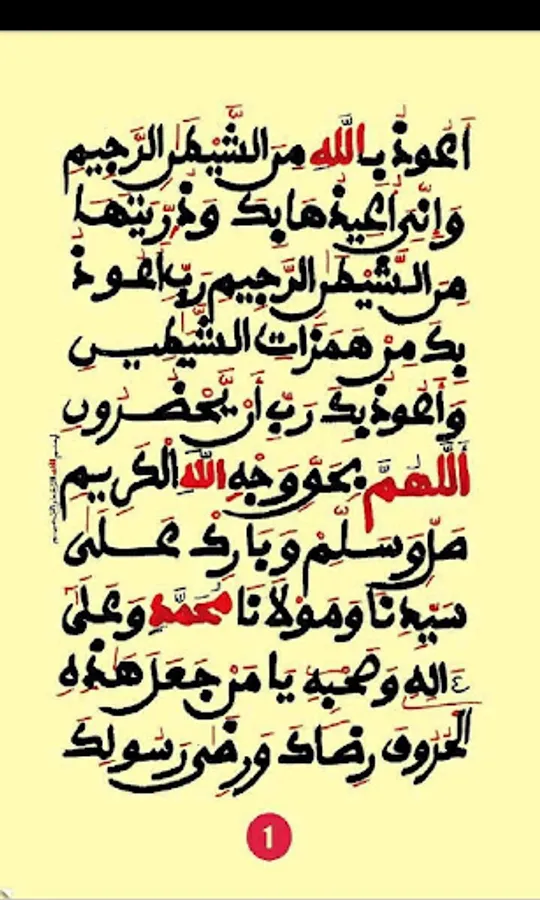 أَعُوذُ بِاللَّهِ مِنَ الشَّيْطَٰنِ الرَّجِيمِ
وَإِنِّي أُعِيذُهَا بِكَ وَذُرِّيَّتَهَا
مِنَ الشَّيْطَٰنِ الرَّجِيمِ رَبِّ أَعُوذُ
بِكَ مِنْ هَمَزَاتِ الشَّيَٰطِينِ
وَأَعُوذُ بِكَ رَبِّ أَنْ يَّحْضُرُونِ
اَللَّهُمَّ بِحَقِّ وَجْهِ اللَّهِ الْكَرِيمِ
صَلِّ وَسَلِّمْ وَبَارِكْ عَلَىٰ
سَيِّدِنَا وَمَوْلَانَا مُحَمَّدٍ وَعَلَىٰ
ءَالِهِ وَصَحْبِهِ يَا مَنْ جَعَلَ هَٰذِهِ
الْحُرُوفَ رِضَاكَ وَرِضَىٰ رَسُولِكَ
1